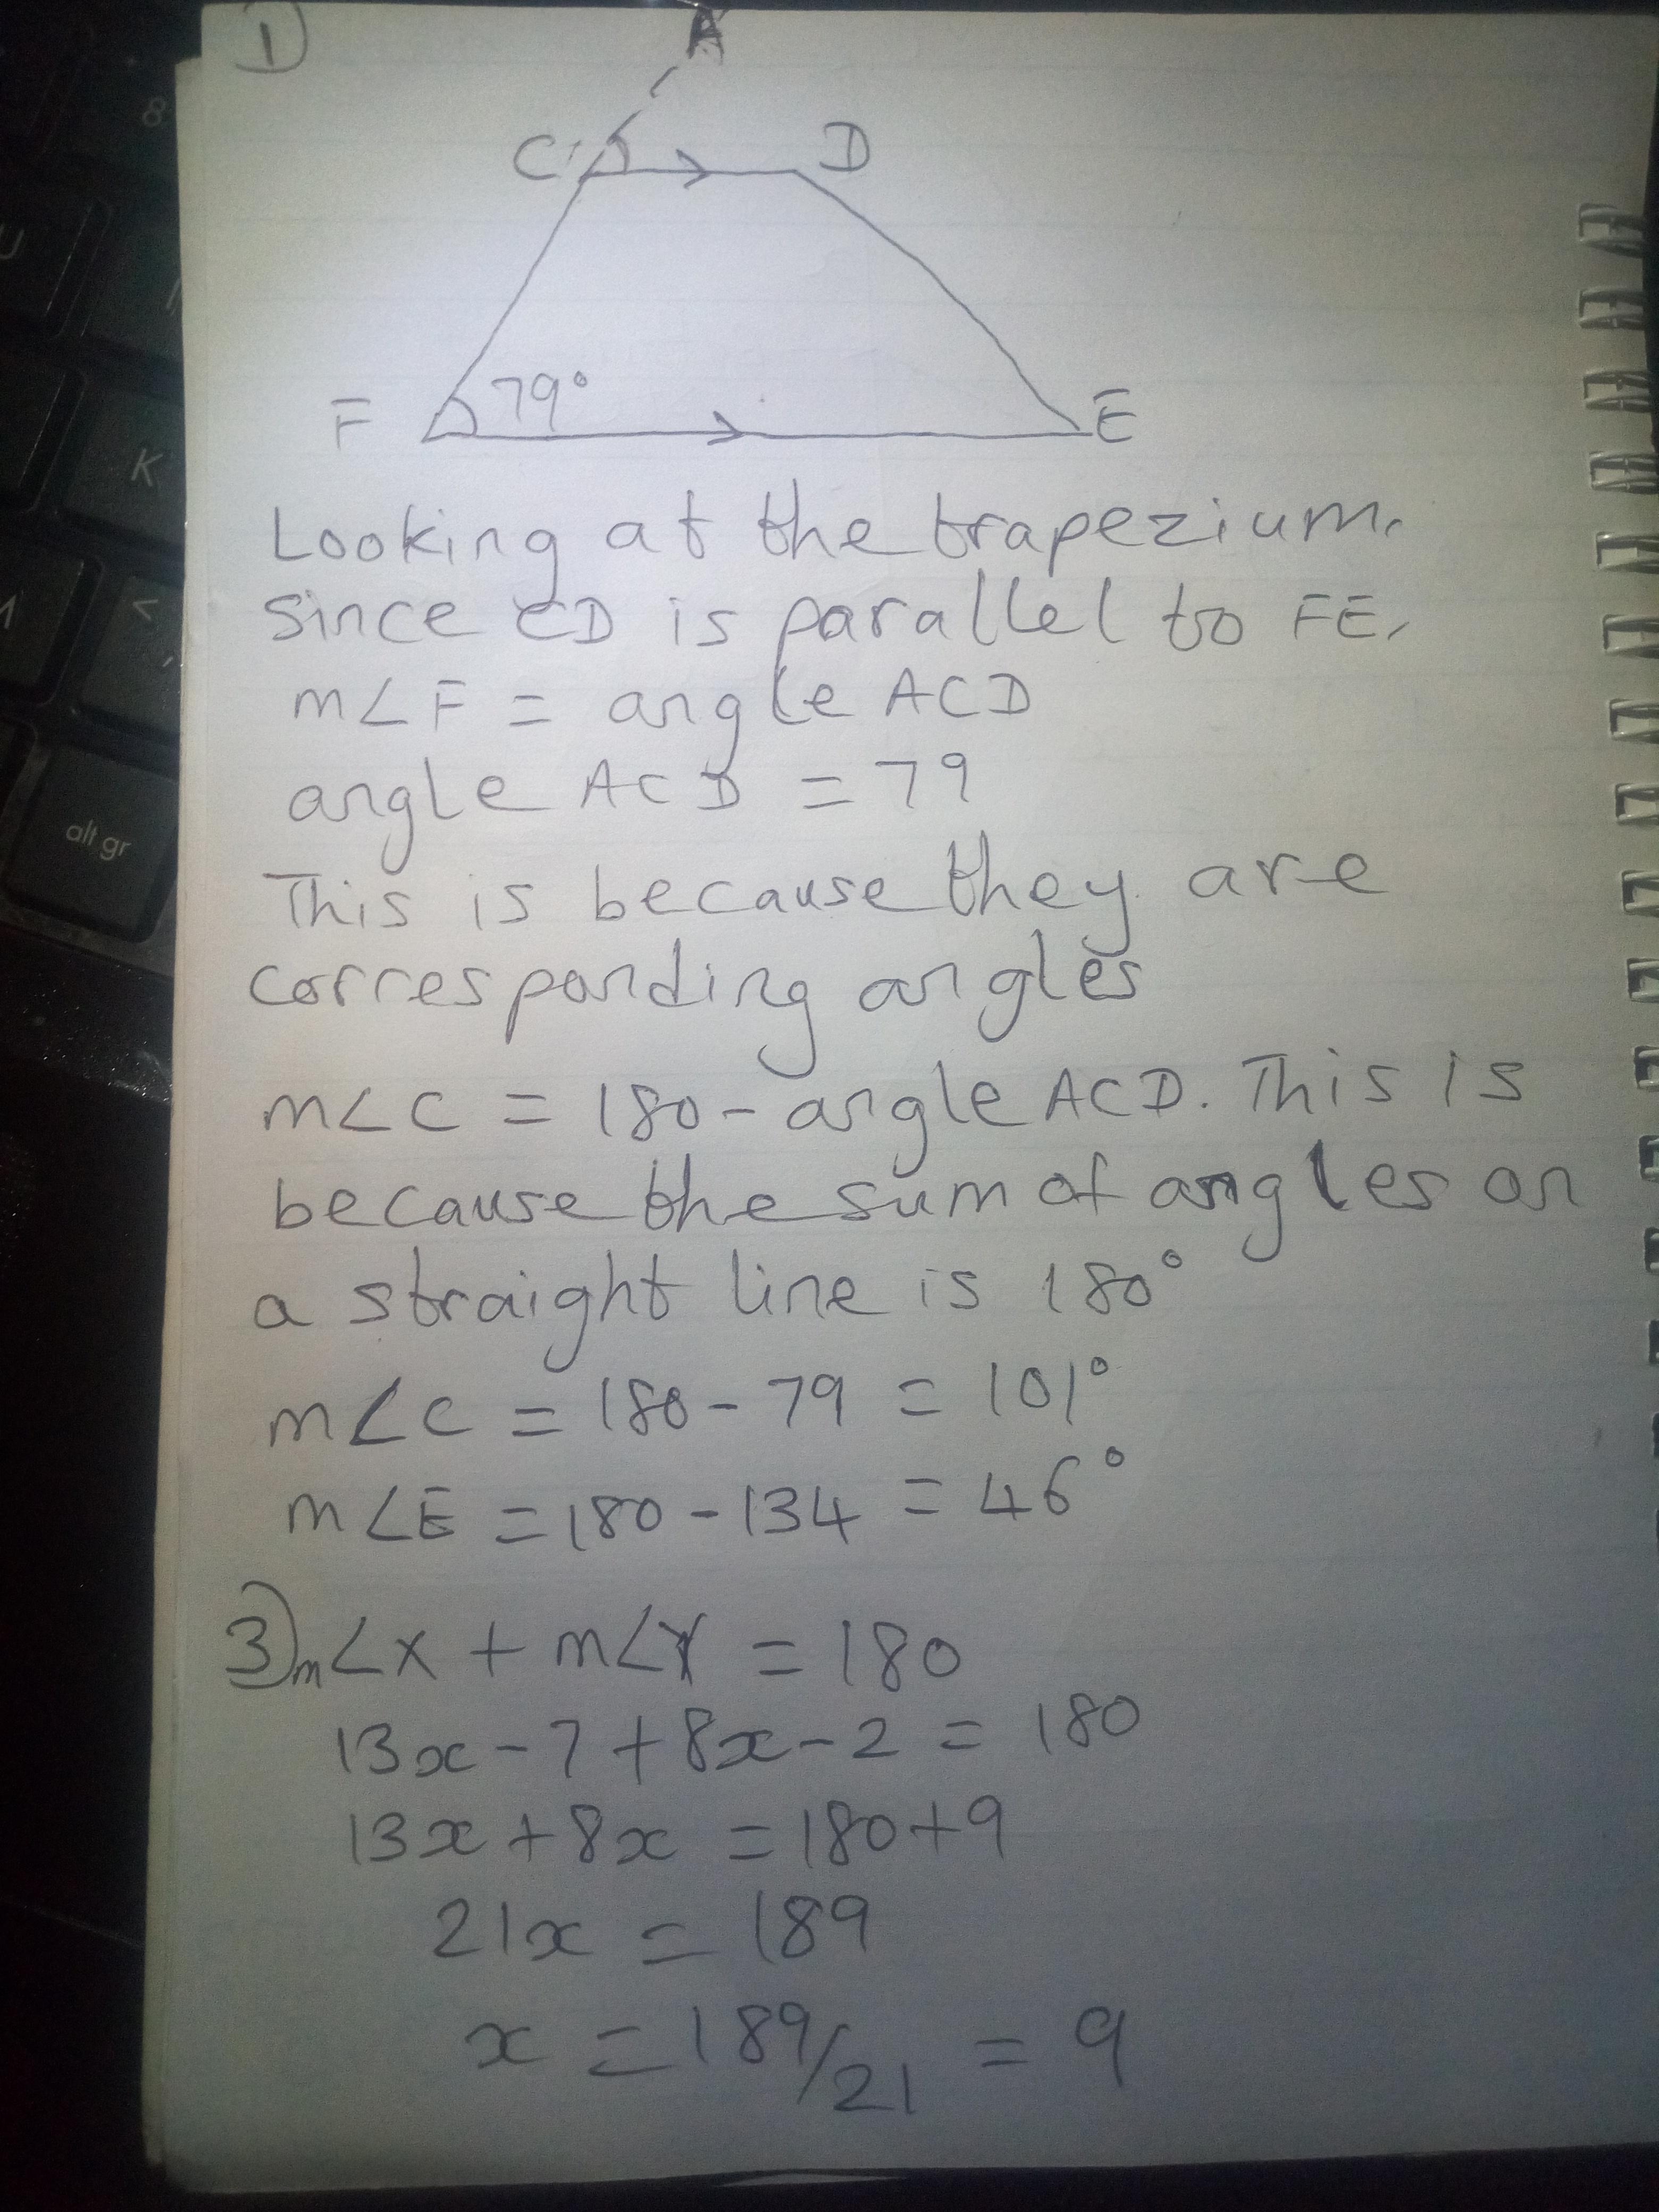 1)
A
C D
F 79° E
Looking at the trapezium.
since CD is parallel to FE,
m∠F = angle ACD
angle ACD = 79
This is because they are
corresponding angles
m∠C = 180 - angle ACD. This is
because the sum of angles on
a straight line is 180°
m∠C = 180 - 79 = 101°
m∠E = 180 - 134 = 46°
3) m∠X + m∠Y = 180
13x - 7 + 8x - 2 = 180
13x + 8x = 180 + 9
21x = 189
x = 189/21 = 9
8
U
K
<
,
alt gr